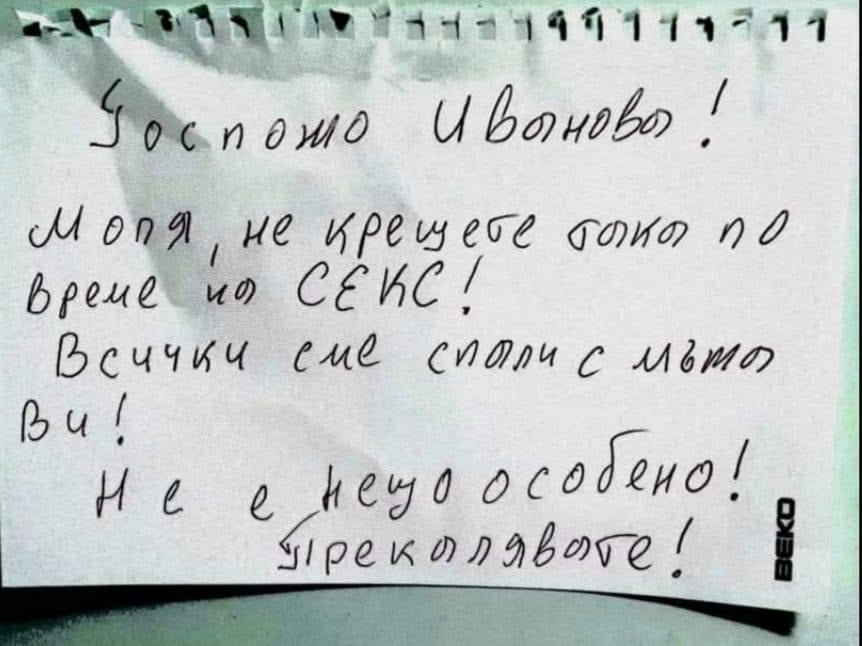 Госпожо Иванова!
Моля, не крещете така по
време на СЕКС!
Всички сме спали с мъжа
Ви!
Не е нещо особено!
Прекалявате!
BEKO